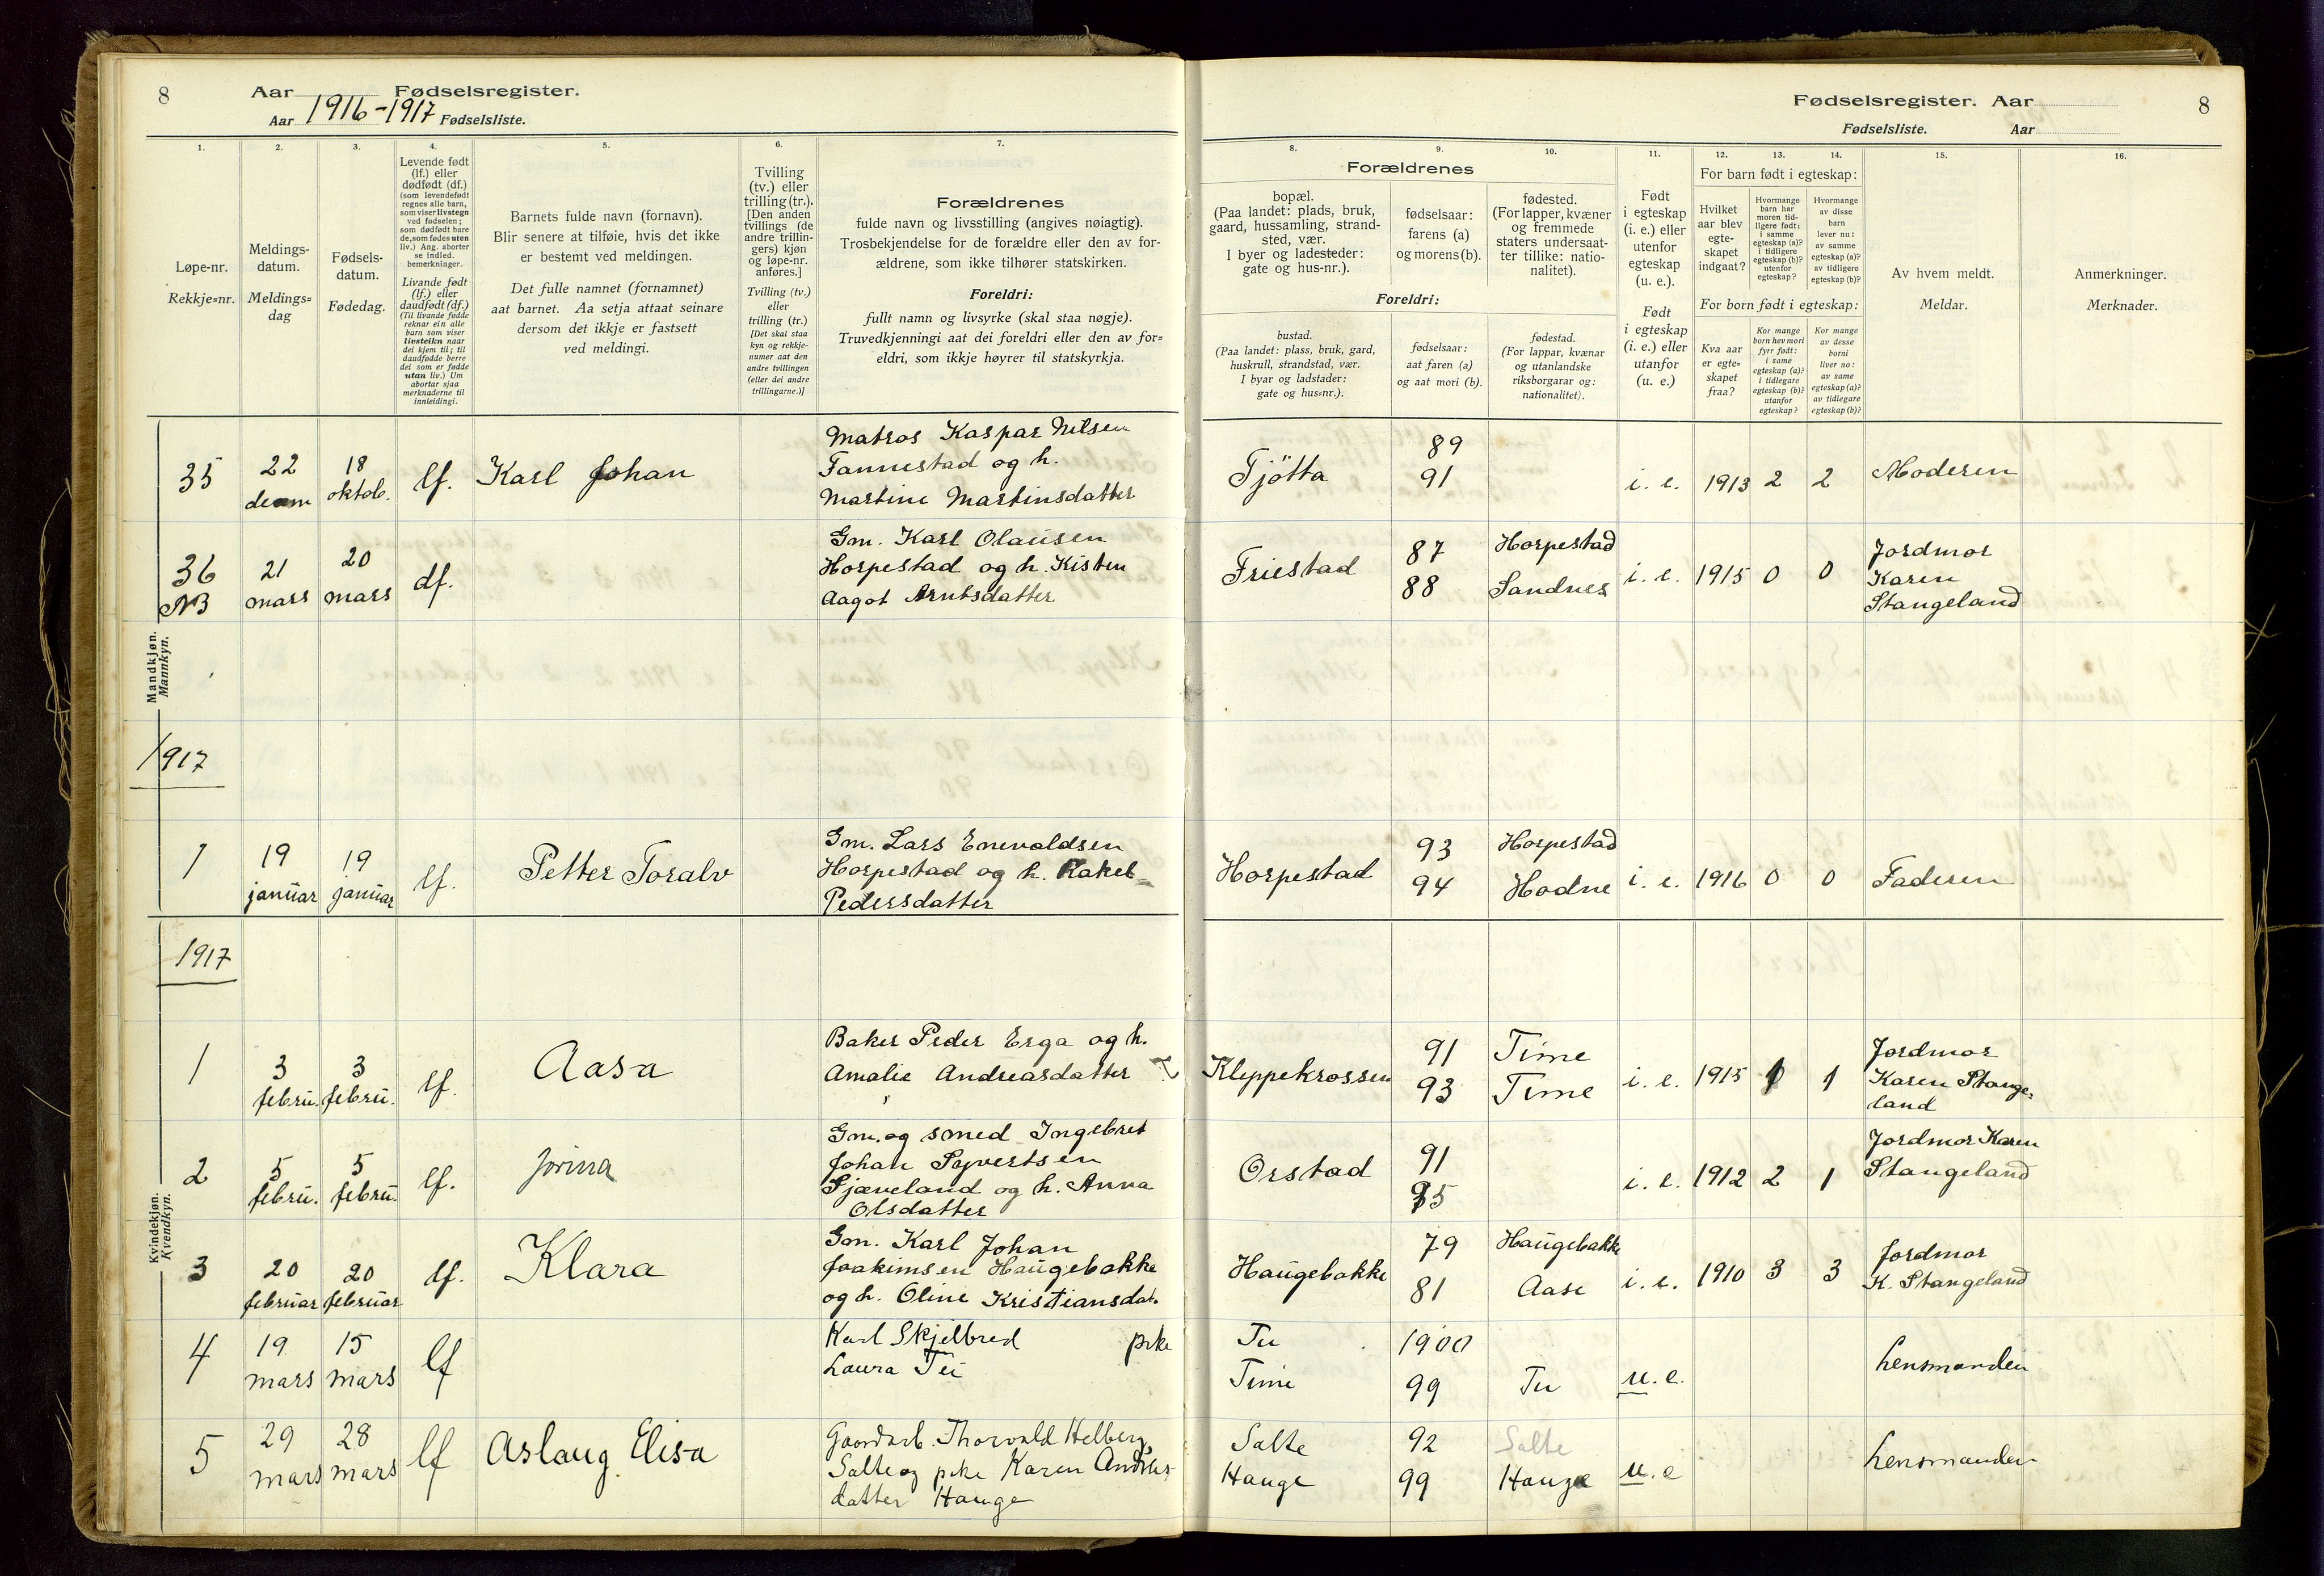 8
Aar Fødselsregister.
Aar 1916-1917 Fødselsliste.
Fødselsregister. Aar
Fødselsliste. Aar
8
1.
Løpe-nr.
Rekkje=nr.
2.
Meldings-
datum.
Meldings=
dag
3.
Fødsels-
datum.
Fødedag.
4.
Levende født
(lf.) eller
dødfødt (df.)
(som levendefødt
regnes alle barn,
som viser livstegn
ved fødselen;
som dødfødt bare
de, som fødes uten
liv.) Ang. aborter
se indled.
bemerkninger.
Livande født
(lf.) eller
daudfødt (df.)
(Til livande fødde
reknar ein alle
barn som viser
livsteikn naar
dei kjem til; til
daudfødde berre
dei som er fødde
utan liv.) Um
abortar sjaa
merknaderne til
innleidingi.
5.
Barnets fulde navn (fornavn).
Blir senere at tilføie, hvis det ikke
er bestemt ved meldingen.
Det fulle namnet (fornamnet)
aat barnet. Aa setja attaat seinare
dersom det ikkje er fastsett
ved meldingi.
6.
Tvilling
(tv.) eller
trilling (tr.).
[Den anden
tvillings (de
andre trillin-
gers) kjøn
og løpe-nr.
anføres.]
Tvilling (tv.)
eller
trilling (tr.)
[Det skal staa
kyn og rekkje-
numer aat den
andre tvillingen
(eller dei andre
trillingarne.)]
7.
Forældrenes
fulde navn og livsstilling (angives nøiagtig).
Trosbekjendelse for de forældre eller den av for-
ældrene, som ikke tilhører statskirken.
Foreldri:
fullt namn og livsyrke (skal staa nøgje).
Truvedkjenningi aat dei foreldri eller den av for=
eldri, som ikkje høyrer til statskyrkja.
Forældrenes
8.
bopæl.
(Paa landet: plads, bruk,
gaard, hussamling, strand-
sted, vær.
I byer og ladesteder:
gate og hus-nr.).
9.
fødselsaar:
farens (a)
og morens (b).
10.
fødested.
(For lapper, kvæner
og fremmede
staters undersaat-
ter tillike: natio-
nalitet).
Foreldri:
bustad.
(Paa landet: plass, bruk, gard,
huskrull, strandstad, vær.
I byar og ladstader:
gate og hus=nr.).
fødselsaar:
aat faren (a)
og aat mori (b).
fødestad.
(For lappar, kvænar
og utanlandske
riksborgarar og:
nationalitet).
11.
Født
i egteskap
(i. e.) eller
utenfor
egteskap
(u. e.).
Født
i egteskap
(i. e.) eller
utanfor
(u. e.)
12. 13. 14.
For barn født i egteskap:
Hvilket
aar blev
egte-
skapet
indgaat?
Hvormange
barn har
moren tid-
ligere født:
i samme
egteskap (a)?
i tidligere
egteskap (b)?
utenfor
egteskap?
Hvormange
av disse
barn
lever nu:
av samme
egteskap (a)?
av tidligere
egteskap (b)?
For born født i egteskap:
Kva aar
er egte=
skapet
fraa?
Kor mange
born hev mori
fyrr født:
i same
egteskap (a)?
i tidlegare
egteskap (b)?
utanfor
egteskap?
Kor mange
av desse
borni
liver no:
av same
egteskap (a)?
av tidlegare
egteskap (b)?
15.
Av hvem meldt.
Meldar.
16.
Anmerkninger.
Merknader.
Mandkjøn.
Mannkyn.
35 22 18 oktob. lf. Karl Johan
Matros Kaspar Nilsen
Fannestad og h.
Martine Martinsdatter
Tjötta 89 91 i. e. 1913 2 2 Moderen
36 NB 21 mars 20 mars df.
Gm. Karl Olausen
Horpestad og h. Kisten
Aagot Arntsdatter
Friestad 87 Horpestad
88 Sandnes i. e. 1915 0 0
Jordmor
Karen
Stangeland
1917
1 19 januar 19 januar lf. Petter Toralv
Gm. Lars Enevoldsen
Horpestad og h. Rakel
Pedersdatter
Horpestad 93 Horpestad
94 Hodne i. e. 1916 0 0 Faderen
1917
Kvindekjøn.
Kvendkyn.
1 3 febru. 3 febru. lf. Aasa
Baker Peder Erga og h.
Amalie Andreasdatter
Kleppekrossen 91 Time
93 Time i. e. 1915 1 1
Jordmor
Karen Stange-
land
2 5 febru. 5 febru. lf. Jorina
Gm. og smed Ingebret
Johan Syvertsen
Sjæveland og h. Anna
Olsdatter
Orstad 91
i. e. 1912 2 1
Jordmor Karen
Stangeland
3 20 februar 20 februar lf. Klara
Gm. Karl Johan
Joakimsen Haugebakke
og h. Oline Kristiansdat.
Haugebakke 79 Haugebakke
81 Aase i. e. 1910 3 3
Jordmor
K. Stangeland
4 19 mars 15 mars lf
Karl Skjelbred pike
Laura Tu
Tu 1900
Time 99 Tu u. e. Lensmanden
5 29 mars 28 mars lf Aslaug Elisa
Gaardarb. Thorvald Helberg
Salte og pike Karen Andreas
datter Hauge
Salte 92 Salte
Hauge 99 Hauge u. e Lensmanden